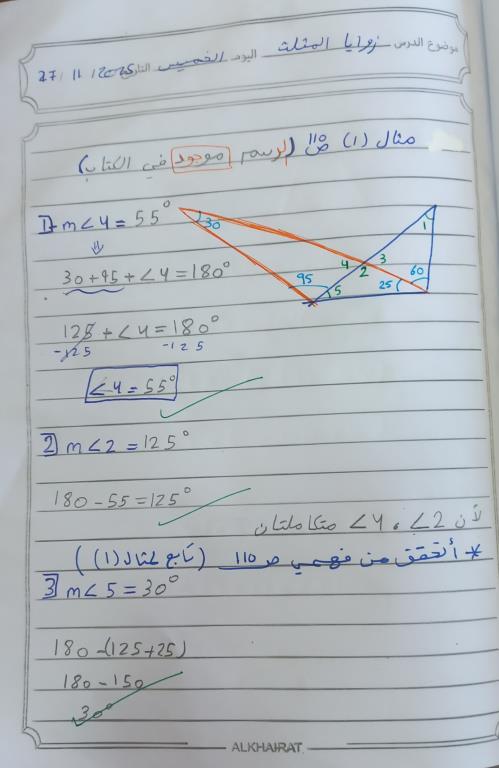 موضوع الدرس زوايا المثلث اليوم الخميس التاريخ 27/11/2025
مثال (1) ص 110 (الرسم موجود في الكتاب)
1 m∠4 = 55°
⇓
30+95+∠4=180°
125+∠4=180°
-125 -125
∠4=55°
30
1
3
4
2
60
95
25
5
2 m∠2=125°
180-55=125°
لأن ∠2 ، ∠4 متكاملتان
* أتحقق من فهمي ص 110 (تابع لمثال (1))
3 m∠5=30°
180-(125+25)
180-150
30°
ALKHAIRAT